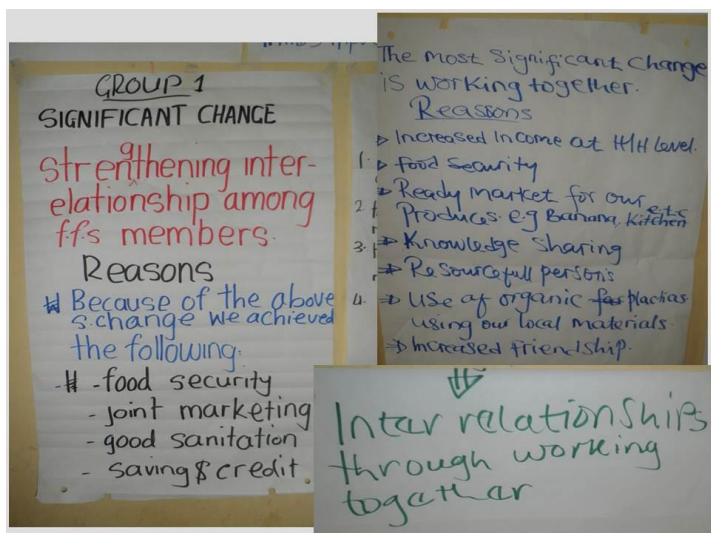 GROUP 1
SIGNIFICANT CHANGE
Strengthening inter-
elationship among
f.f.s members.
Reasons
Because of the above
s.change we achieved
the following:
- food security
- joint marketing
- good sanitation
- saving & credit
1.
2
3.
4.
The most Significant Change
is working together.
Reasons
Increased Income at H/H Level.
food Security
Ready market for our
Produces e.g Banana, Kitchen e.t.c
Knowledge Sharing
Resourcefull persons
Use of organic plactias
using our local materials.
Increased Friendship.
Inter relationships
through working
together